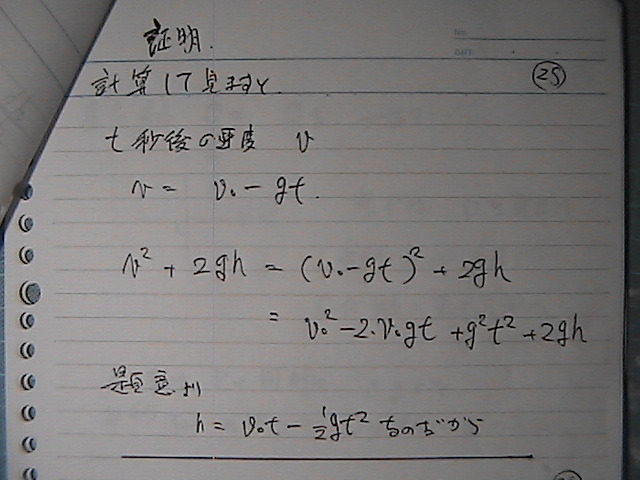 No.
DATE
証明.
計算して見ますと.
25
t秒後の速度 v
v = v₀ - gt.
v² + 2gh = (v₀-gt)² + 2gh
= v₀² - 2・v₀gt + g²t² + 2gh
題意より
h = v₀t - ½gt² なのだから